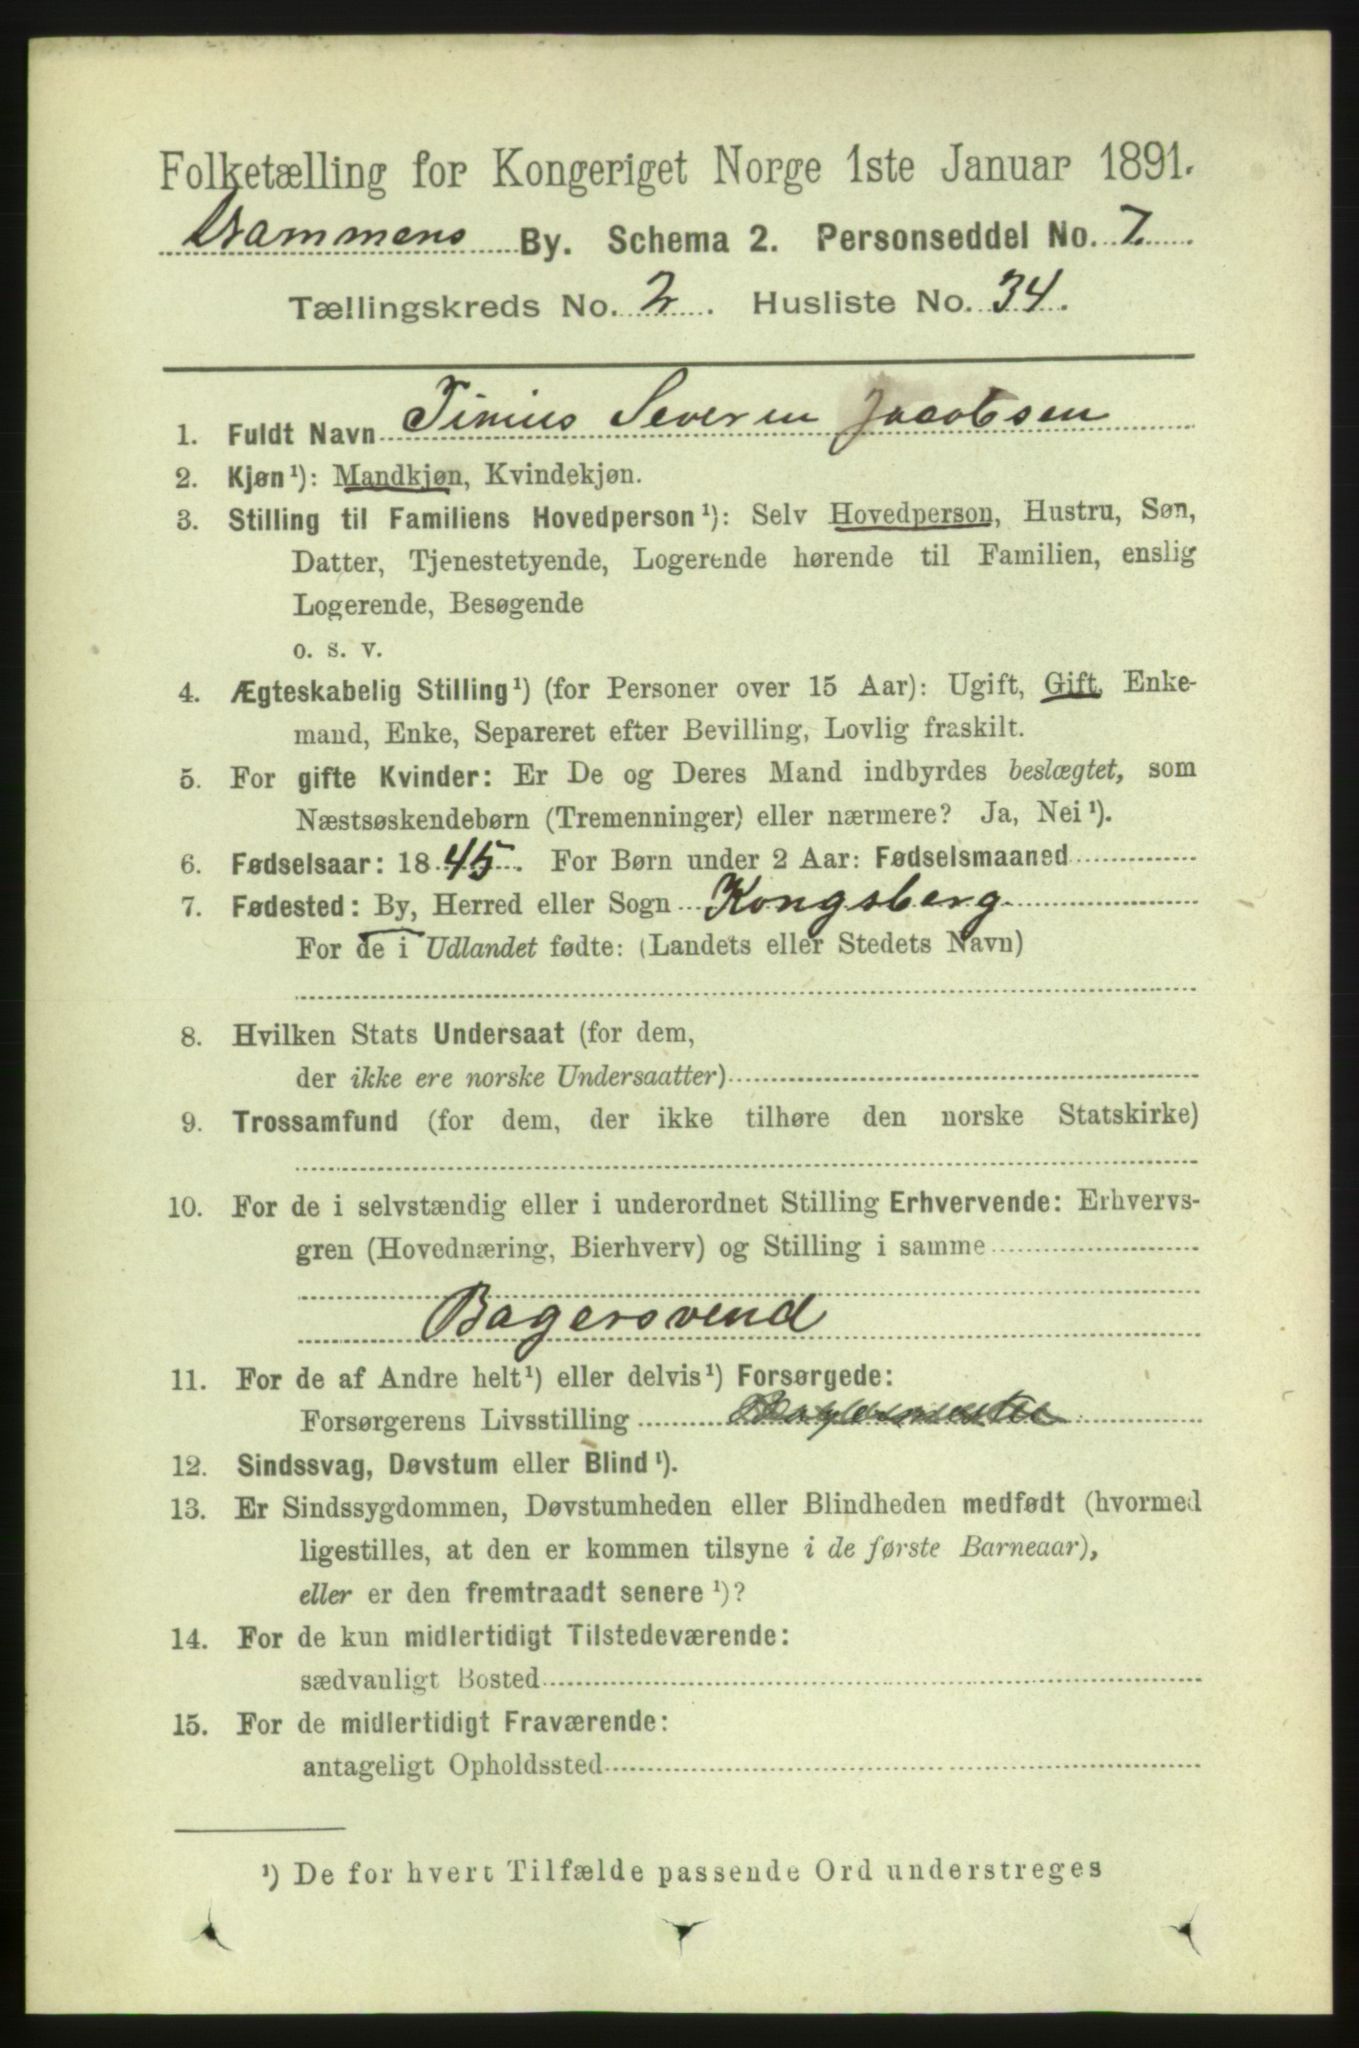 Folketælling for Kongeriget Norge 1ste Januar 1891.
Drammens By. Schema 2. Personseddel No. 7.
Tællingskreds No. 2. Husliste No. 34.
1. Fuldt Navn Tinius Severin Jacobsen
2. Kjøn¹): Mandkjøn, Kvindekjøn.
3. Stilling til Familiens Hovedperson¹): Selv Hovedperson, Hustru, Søn,
Datter, Tjenestetyende, Logerende hørende til Familien, enslig
Logerende, Besøgende
o. s. v.
4. Ægteskabelig Stilling¹) (for Personer over 15 Aar): Ugift, Gift, Enke-
mand, Enke, Separeret efter Bevilling, Lovlig fraskilt.
5. For gifte Kvinder: Er De og Deres Mand indbyrdes beslægtet, som
Næstsøskendebørn (Tremenninger) eller nærmere? Ja, Nei¹).
6. Fødselsaar: 1845. For Børn under 2 Aar: Fødselsmaaned
7. Fødested: By, Herred eller Sogn Kongsberg
For de i Udlandet fødte: (Landets eller Stedets Navn)
8. Hvilken Stats Undersaat (for dem,
der ikke ere norske Undersaatter)
9. Trossamfund (for dem, der ikke tilhøre den norske Statskirke)
10. For de i selvstændig eller i underordnet Stilling Erhvervende: Erhvervs-
gren (Hovednæring, Bierhverv) og Stilling i samme
Bagersvend
11. For de af Andre helt¹) eller delvis¹) Forsørgede:
Forsørgerens Livsstilling
12. Sindssvag, Døvstum eller Blind¹).
13. Er Sindssygdommen, Døvstumheden eller Blindheden medfødt (hvormed
ligestilles, at den er kommen tilsyne i de første Barneaar),
eller er den fremtraadt senere¹)?
14. For de kun midlertidigt Tilstedeværende:
sædvanligt Bosted
15. For de midlertidigt Fraværende:
antageligt Opholdssted
¹) De for hvert Tilfælde passende Ord understreges